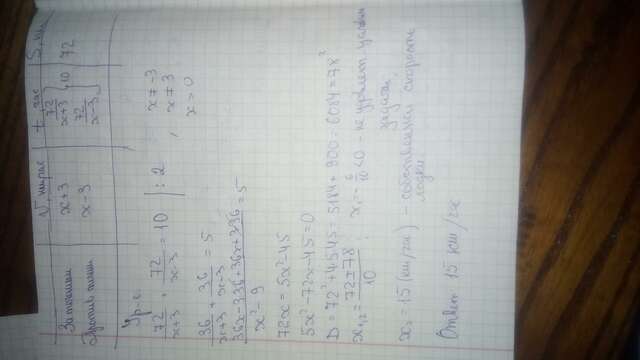 V, км/час t, час S, км
За течением x+3 72/(x+3) } 10 72
Против теч. x-3 72/(x-3)
Ур-е.
72/(x+3) + 72/(x-3) = 10 | : 2 , x ≠ -3
x ≠ 3
x > 0
36/(x+3) + 36/(x-3) = 5
(36x-3·36+36x+3·36)/(x²-9) = 5
72x = 5x²-45
5x²-72x-45=0
D = 72²+4·5·45 = 5184+900=6084=78²
x₁,₂ = (72±78)/10 ; x₁ = -6/10 <0 - не удовлет. условию
задачи,
x₂ = 15 (км/ча) - собственная скорость
лодки.
Ответ 15 км/ча